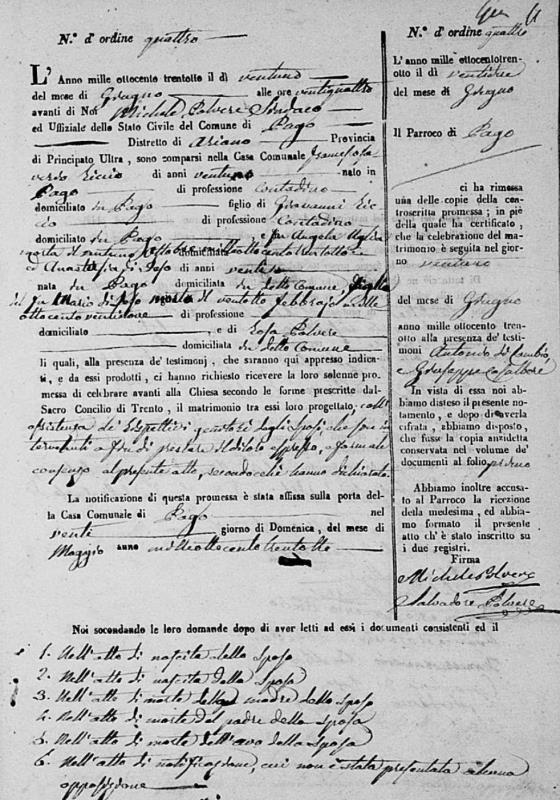 N.° d' ordine quattro
L' Anno mille ottocento trentotto il dì ventuno
del mese di Giugno alle ore ventiquattro
avanti di Noi Michele Polvere Sindaco
ed Uffiziale dello Stato Civile del Comune di Pago
Distretto di Ariano Provincia
di Principato Ultra, sono comparsi nella Casa Comunale Francesco Sa-
verio Riccio di anni ventuno nato in
Pago di professione Contadino
domiciliato in Pago figlio di Giovanni Ric
cio di professione Contadino
domiciliato in Pago e fu Angela
morta il ventuno ottobre mille ottocento ventotto
ed Anastasia di Ieso di anni venti
nata in Pago domiciliata in detto Comune, figlia
del fu Mario di Ieso morto il ventotto febbrajo mille
ottocento ventinove di professione
domiciliato , e di Rosa Polvere
domiciliata in detto Comune
li quali, alla presenza de' testimonj, che saranno qui appresso indica-
ti, e da essi prodotti, ci hanno richiesto ricevere la loro solenne pro-
messa di celebrare avanti alla Chiesa secondo le forme prescritte dal-
Sacro Concilio di Trento, il matrimonio tra essi loro progettato, coll'
assistenza de' rispettivi genitori degli sposi, che sono in
tervenuti a fin di prestare il di loro espresso, e formale
consenso al presente atto, secondocchè hanno dichiarato
La notificazione di questa promessa è stata affissa sulla porta del-
la Casa Comunale di Pago nel
venti giorno di Domenica, del mese di
Maggio anno milleottocentotrentotto
Noi secondando le loro domande dopo di aver letti ad essi i documenti consistenti ed il
1. Nell'atto di nascita dello sposo
2. Nell'atto di nascita della sposa
3. Nell'atto di morte della madre dello sposo
4. Nell'atto di morte del padre della sposa
5. Nell'atto di morte dell'avo della sposa
6. Nell'atto di notificazione, cui non è stata presentata alcuna
opposizione
N.° d' ordine quattro
L' anno mille ottocentotren-
otto il dì ventidue
del mese di Giugno
Il Parroco di Pago
ci ha rimessa
una delle copie della con-
troscritta promessa ; in piè
della quale ha certificato ,
che la celebrazione del ma-
trimonio è seguita nel gior-
no ventuno
del mese di Giugno
anno mille ottocento tren-
otto alla presenza de' testi-
moni Antonio
e Giuseppe
In vista di essa noi ab-
biamo disteso il presente no-
tamento, e dopo di averla
cifrata , abbiamo disposto ,
che fusse la copia anzidetta
conservata nel volume de'
documenti al folio primo
Abbiamo inoltre accusa-
to al Parroco la ricezione
della medesima , ed abbia-
mo formato il presente
atto ch' è stato inscritto su
i due registri.
Firma
Michele Polvere
Salvadore Polvere